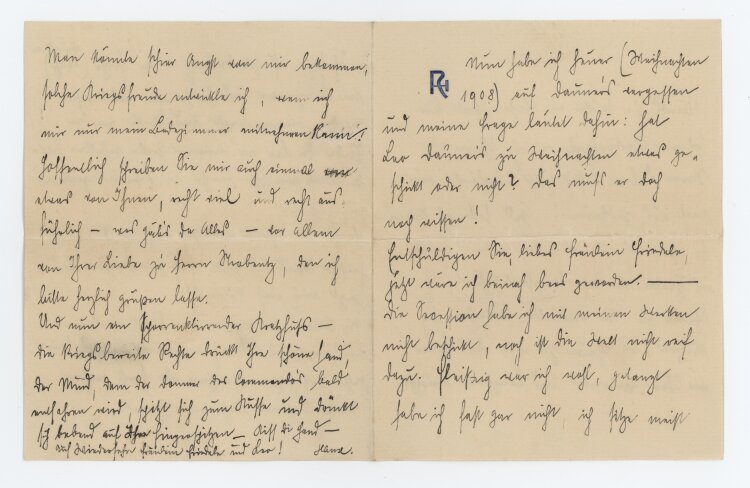 Man könnte schier Angst von mir bekommen,
solche Kriegsfreude entwickle ich, wenn ich
mir nur mein Badezimmer mitnehmen kann!
Hoffentlich schreiben Sie mir auch einmal
etwas von Ihnen, recht viel und recht aus-
führlich – was gäb's da Alles – vor allem
von Ihrer Liebe zu Herrn, den ich
bitte herzlich grüßen lasse.
Und nun ein Kratzfuß –
die kriegsbereite Rechte drückt Ihre schöne Hand,
der Mund, dem der Donner des Commandos bald
entfahren wird, spitzt sich zum Kusse und drückt
sich bebend auf Ihre Fingerspitzen – Küss die Hand –
auf Wiedersehn Fräulein Friedele und Leo!
Nun habe ich heuer (Weihnachten
1908) auf Dauneris vergessen
und meine Frage lautet dahin: hat
Leo zu Weihnachten etwas ge-
schickt oder nicht? Das muss er doch
noch wissen!
Entschuldigen Sie, liebes Fräulein Friedele,
jetzt wäre ich beinah bees geworden. —
Die Secession habe ich mit meinen Werken
nicht beschickt, noch ist die Welt nicht reif
dazu. Fleißig war ich wohl, gelangt
habe ich fast gar nicht, ich sitze meist